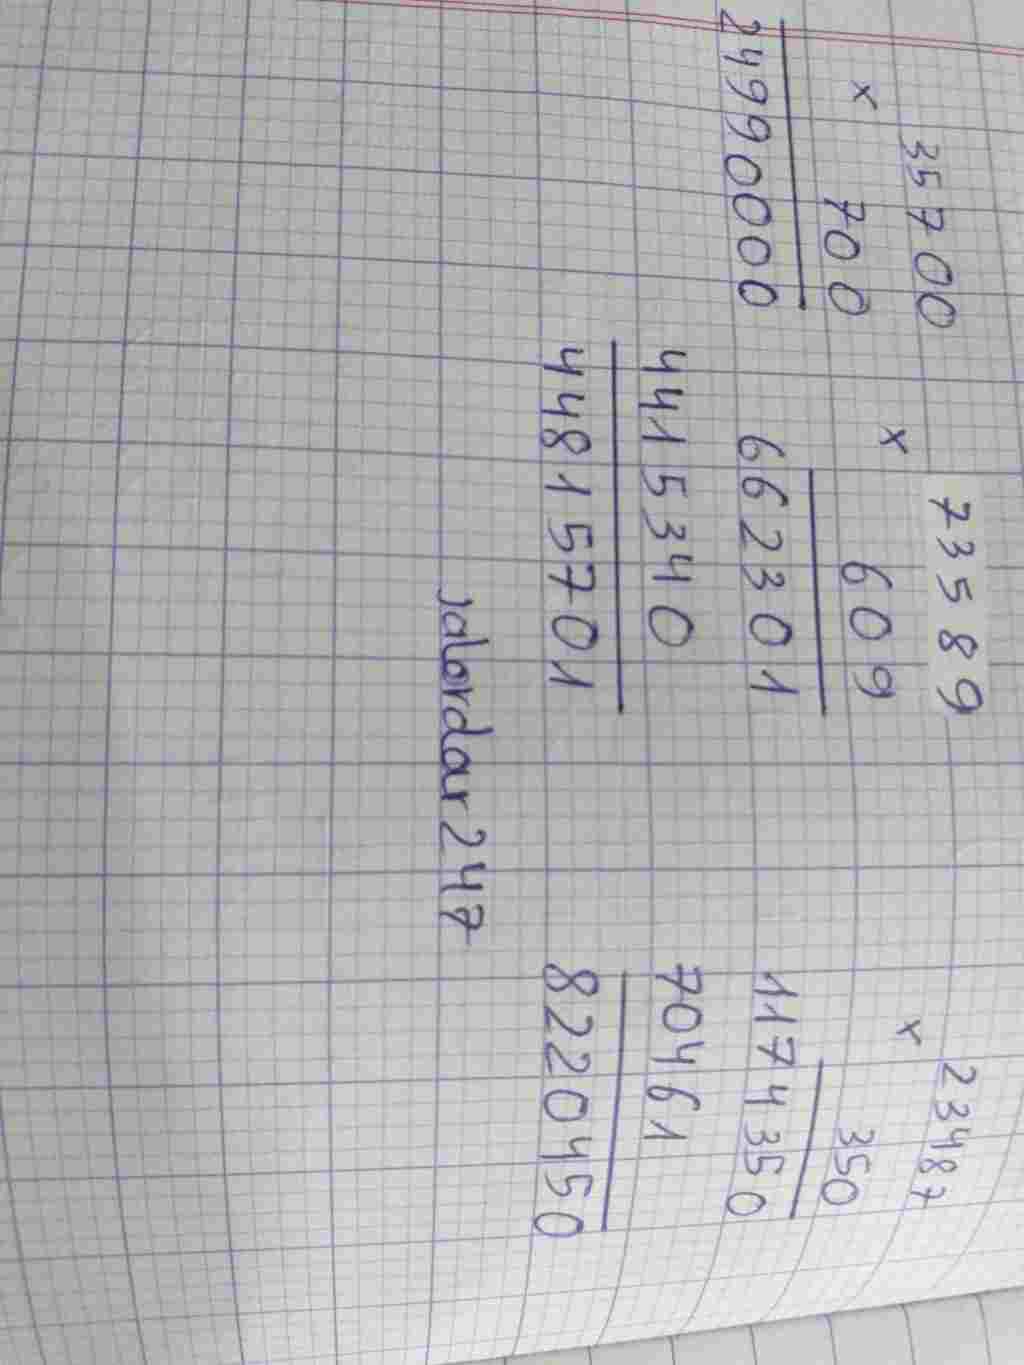 35700
× 700
24990000
73589
× 609
662301
4415340
44815701
23487
× 350
1174350
70461
8220450
Jalordar247